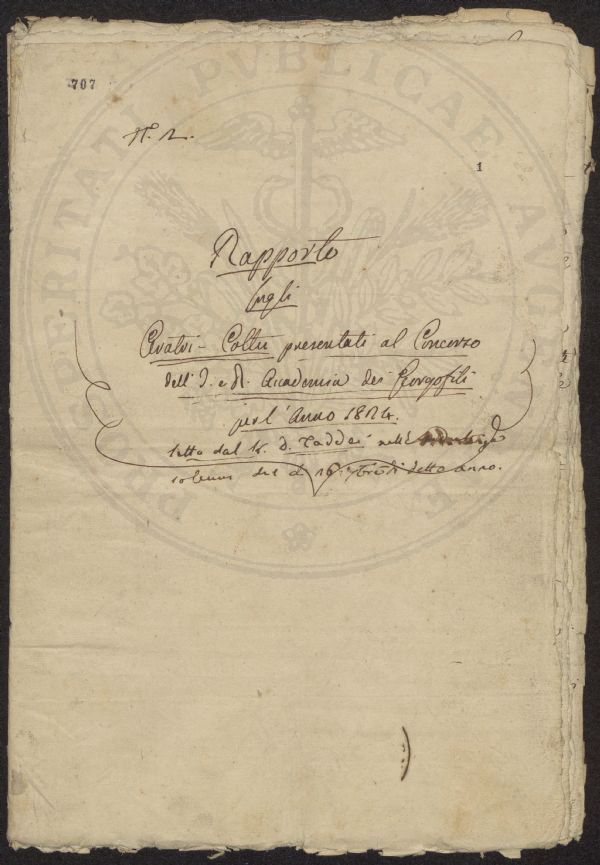 707
N. 2.
1
Rapporto
sugli
Aratri-Coltri presentati al Concorso
dell' I. e R. Accademia dei Georgofili
per l'Anno 1824.
letto dal D. Taddei nell'
solenne del dì di detto anno.
PROSPERITATI PVBLICAE AVGENDAE